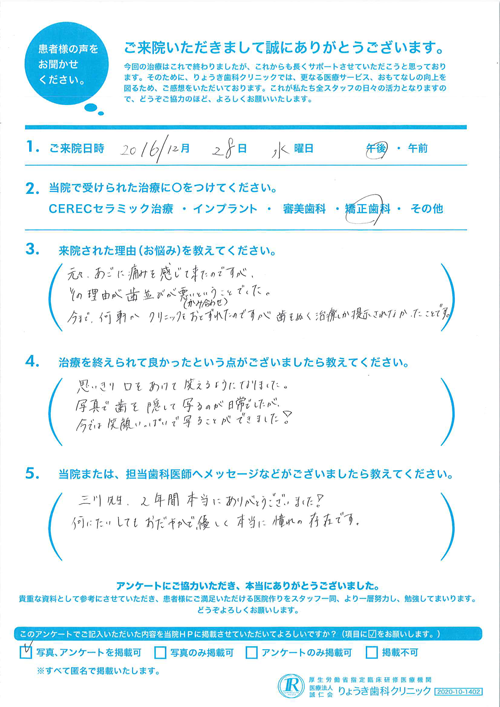 患者様の声を
お聞かせ
ください。
ご来院いただきまして誠にありがとうございます。
今回の治療はこれで終わりましたが、これからも長くサポートさせていただこうと思っており
ます。そのために、りょうき歯科クリニックでは、更なる医療サービス、おもてなしの向上を
図るため、ご感想をいただいております。これが私たち全スタッフの日々の活力となりますの
で、どうぞご協力のほど、よろしくお願いいたします。
1. ご来院日時 2016/12月 28日 水曜日 午後・午前
2. 当院で受けられた治療に○をつけてください。
CERECセラミック治療 ・ インプラント ・ 審美歯科 ・ 矯正歯科 ・ その他
3. 来院された理由（お悩み）を教えてください。
元々、あごに痛みを感じて来たのですが、
その理由が歯並びが悪いということでした。
(かみ合わせ)
今まで、何軒か クリニックをおとずれたのですが 歯をぬく治療しか提示されなかったことです。
4. 治療を終えられて良かったという点がございましたら教えてください。
思いきり口をあけて笑えるようになりました。
写真で歯を隠して写るのが日常でしたが、
今では笑顔いっぱいで写ることができました!
5. 当院または、担当歯科医師へメッセージなどがございましたら教えてください。
三川先生、2年間本当にありがとうございました!
何にたいしてもおだやかで優しく本当に憧れの存在です。
アンケートにご協力いただき、本当にありがとうございました。
貴重な資料として参考にさせていただき、患者様にご満足いただける医院作りをスタッフ一同、より一層努力し、勉強してまいります。
どうぞよろしくお願いします。
このアンケートでご記入いただいた内容を当院HPに掲載させていただいてよろしいですか？（項目に☑をお願いします。）
☑ 写真、アンケートを掲載可 □ 写真のみ掲載可 □ アンケートのみ掲載可 □ 掲載不可
※すべて匿名で掲載いたします。
厚生労働省指定臨床研修医療機関
医療法人 誠仁会 りょうき歯科クリニック 2020-10-1402